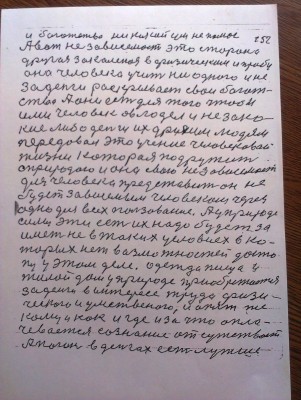 152
и богатство ни какой им не помог
А вот не зависимость это сторона
другая закаленая в физическом и трудо
она человека учит ни одного и не
за деньги раскрывает свои богат-
ство А они есть для того чтоб
ими человек овладел и не за ка
кие либо деньги их другим людям
передовал Это учение человеческой
жизни которая подружит
с природою и она свою не зависимость
для человека представит он не
будет зависемым человеком через
одно для всех ползование. А у природе
силы эти есть их надо будет за
иметь не в таких условиех в ко-
торых нет возможностей досто
пу у этом деле. одежда пища и
жилой дом у природе приобретается
за деньги в интересе труда физи-
ческого и умственого, и опять же
кому и как и где и за что опла-
чевается сознание от существает
А погон в деньгах есть лутшие